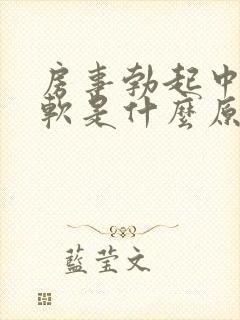 房事勃起中
軟是什麼原
藍莹文